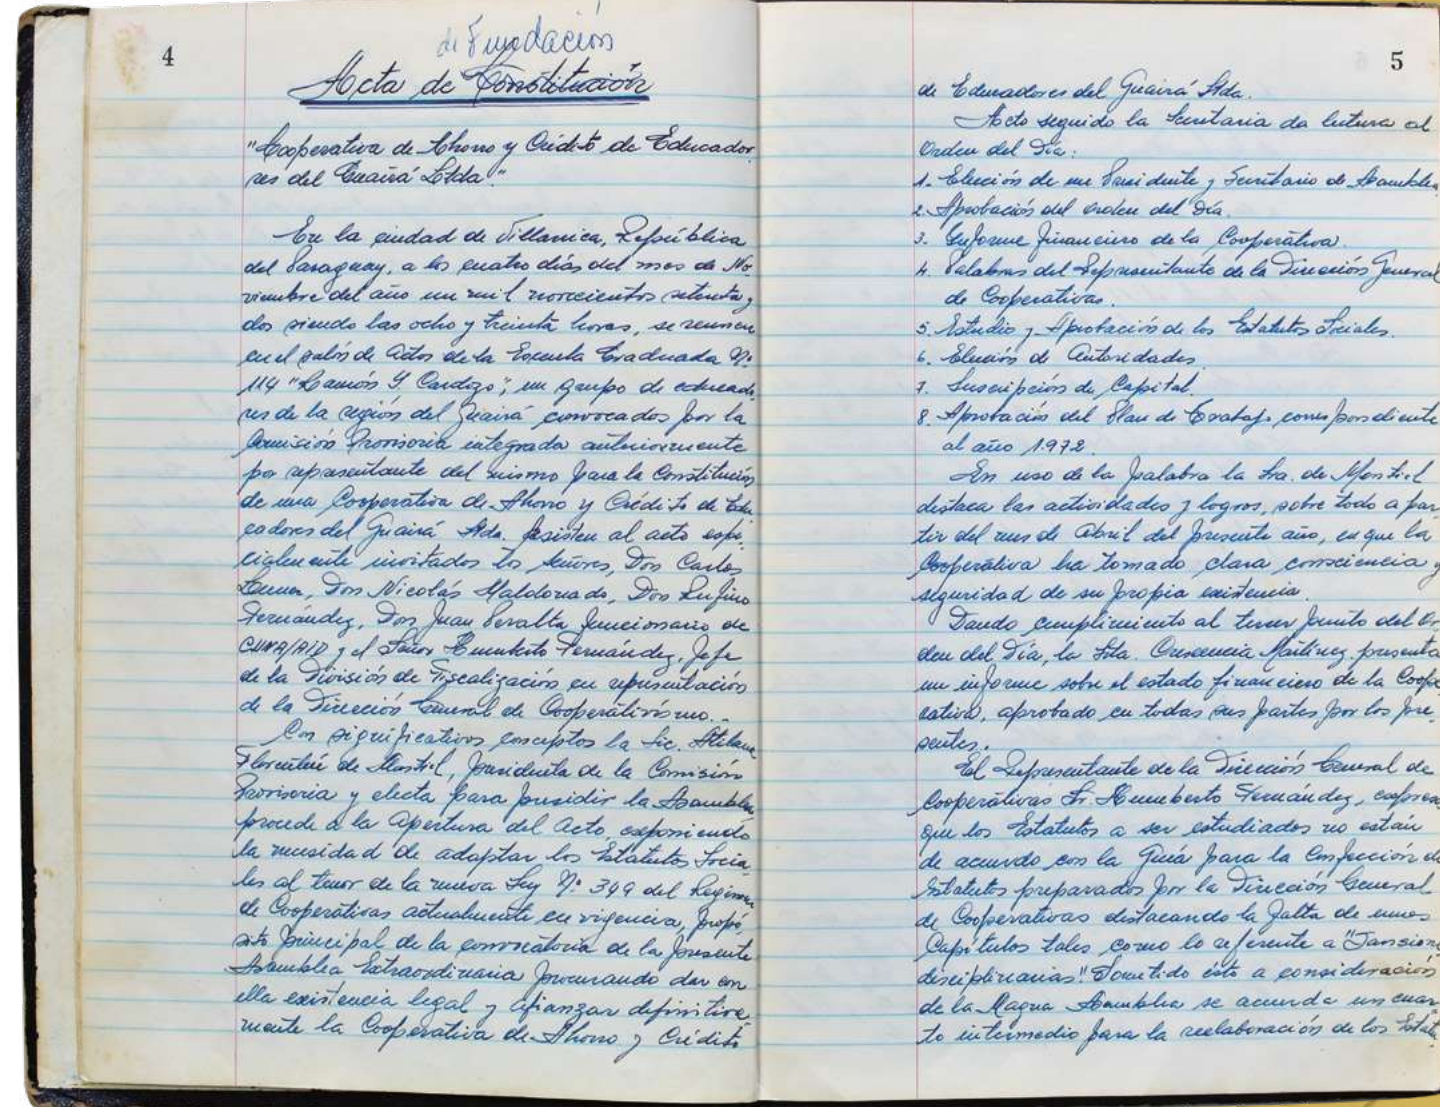 4
de Fundación
Acta de Constitución
"Cooperativa de Ahorro y Crédito de Educado-
res del Guairá Ltda."
En la ciudad de Villarrica, República
del Paraguay, a los cuatro días del mes de No-
viembre del año un mil novecientos setenta y
dos siendo las ocho y treinta horas, se reunen
en el salón de Actos de la Escuela Graduada Nº
114 "Ramón I. Cardozo", un grupo de educado-
res de la región del Guairá convocados por la
Comisión Provisoria integrada anteriormente
por representante del mismo para la Constitución
de una Cooperativa de Ahorro y Crédito de Edu-
cadores del Guairá Ltda. Asisten al acto espe-
cialmente invitados los Señores, Don Carlos
Don Nicolás Maldonado, Don Rufino
Fernández, Don Juan Peralta funcionario de
CUNA/AID y el Señor Humberto Fernández, Jefe
de la División de Fiscalización en representación
de la Dirección General de Cooperativismo.-
Con significativos conceptos la Lic.
Florentín de Mostiel, presidenta de la Comisión
Provisoria y electa para presidir la Asamblea
procede a la apertura del Acto, exponiendo
la necesidad de adaptar los Estatutos Socia-
les al tenor de la nueva Ley Nº 349 del Regimen
de Cooperativas actualmente en vigencia, propó-
sito principal de la convocatoria de la presente
Asamblea Extraordinaria procurando dar con
ella existencia legal y afianzar definitiva-
mente la Cooperativa de Ahorro y Crédito
5
de Educadores del Guairá Ltda.
Acto seguido la Secretaria da lectura al
Orden del Día:
1. Elección de un Presidente y Secretario de Asamblea
2. Aprobación del orden del Día.
3. Informe financiero de la Cooperativa.
4. Palabras del Representante de la Dirección General
de Cooperativas.
5. Estudio y Aprobación de los Estatutos Sociales.
6. Elección de Autoridades.
7. Suscripción de Capital.
8. Aprobación del Plan de Trabajo correspondiente
al año 1.972.
En uso de la palabra la Sra. de Mostiel
destaca las actividades y logros, sobre todo a par-
tir del mes de Abril del presente año, en que la
Cooperativa ha tomado clara consciencia y
seguridad de su propia existencia.
Dando cumplimiento al tercer punto del Or-
den del Día, la Srta. Crescencia Martínez presenta
un informe sobre el estado financiero de la Coope-
rativa, aprobado en todas sus partes por los pre-
sentes.
El Representante de la Dirección General de
Cooperativas Sr. Humberto Fernández, expresa
que los Estatutos a ser estudiados no están
de acuerdo con la Guía para la Confección de
Estatutos preparados por la Dirección General
de Cooperativas destacando la falta de unos
Capítulos tales como lo referente a "Sanciones
disciplinarias". Sometido ésto a consideración
de la Magna Asamblea se acuerda un cuar-
to intermedio para la reelaboración de los Estatu-